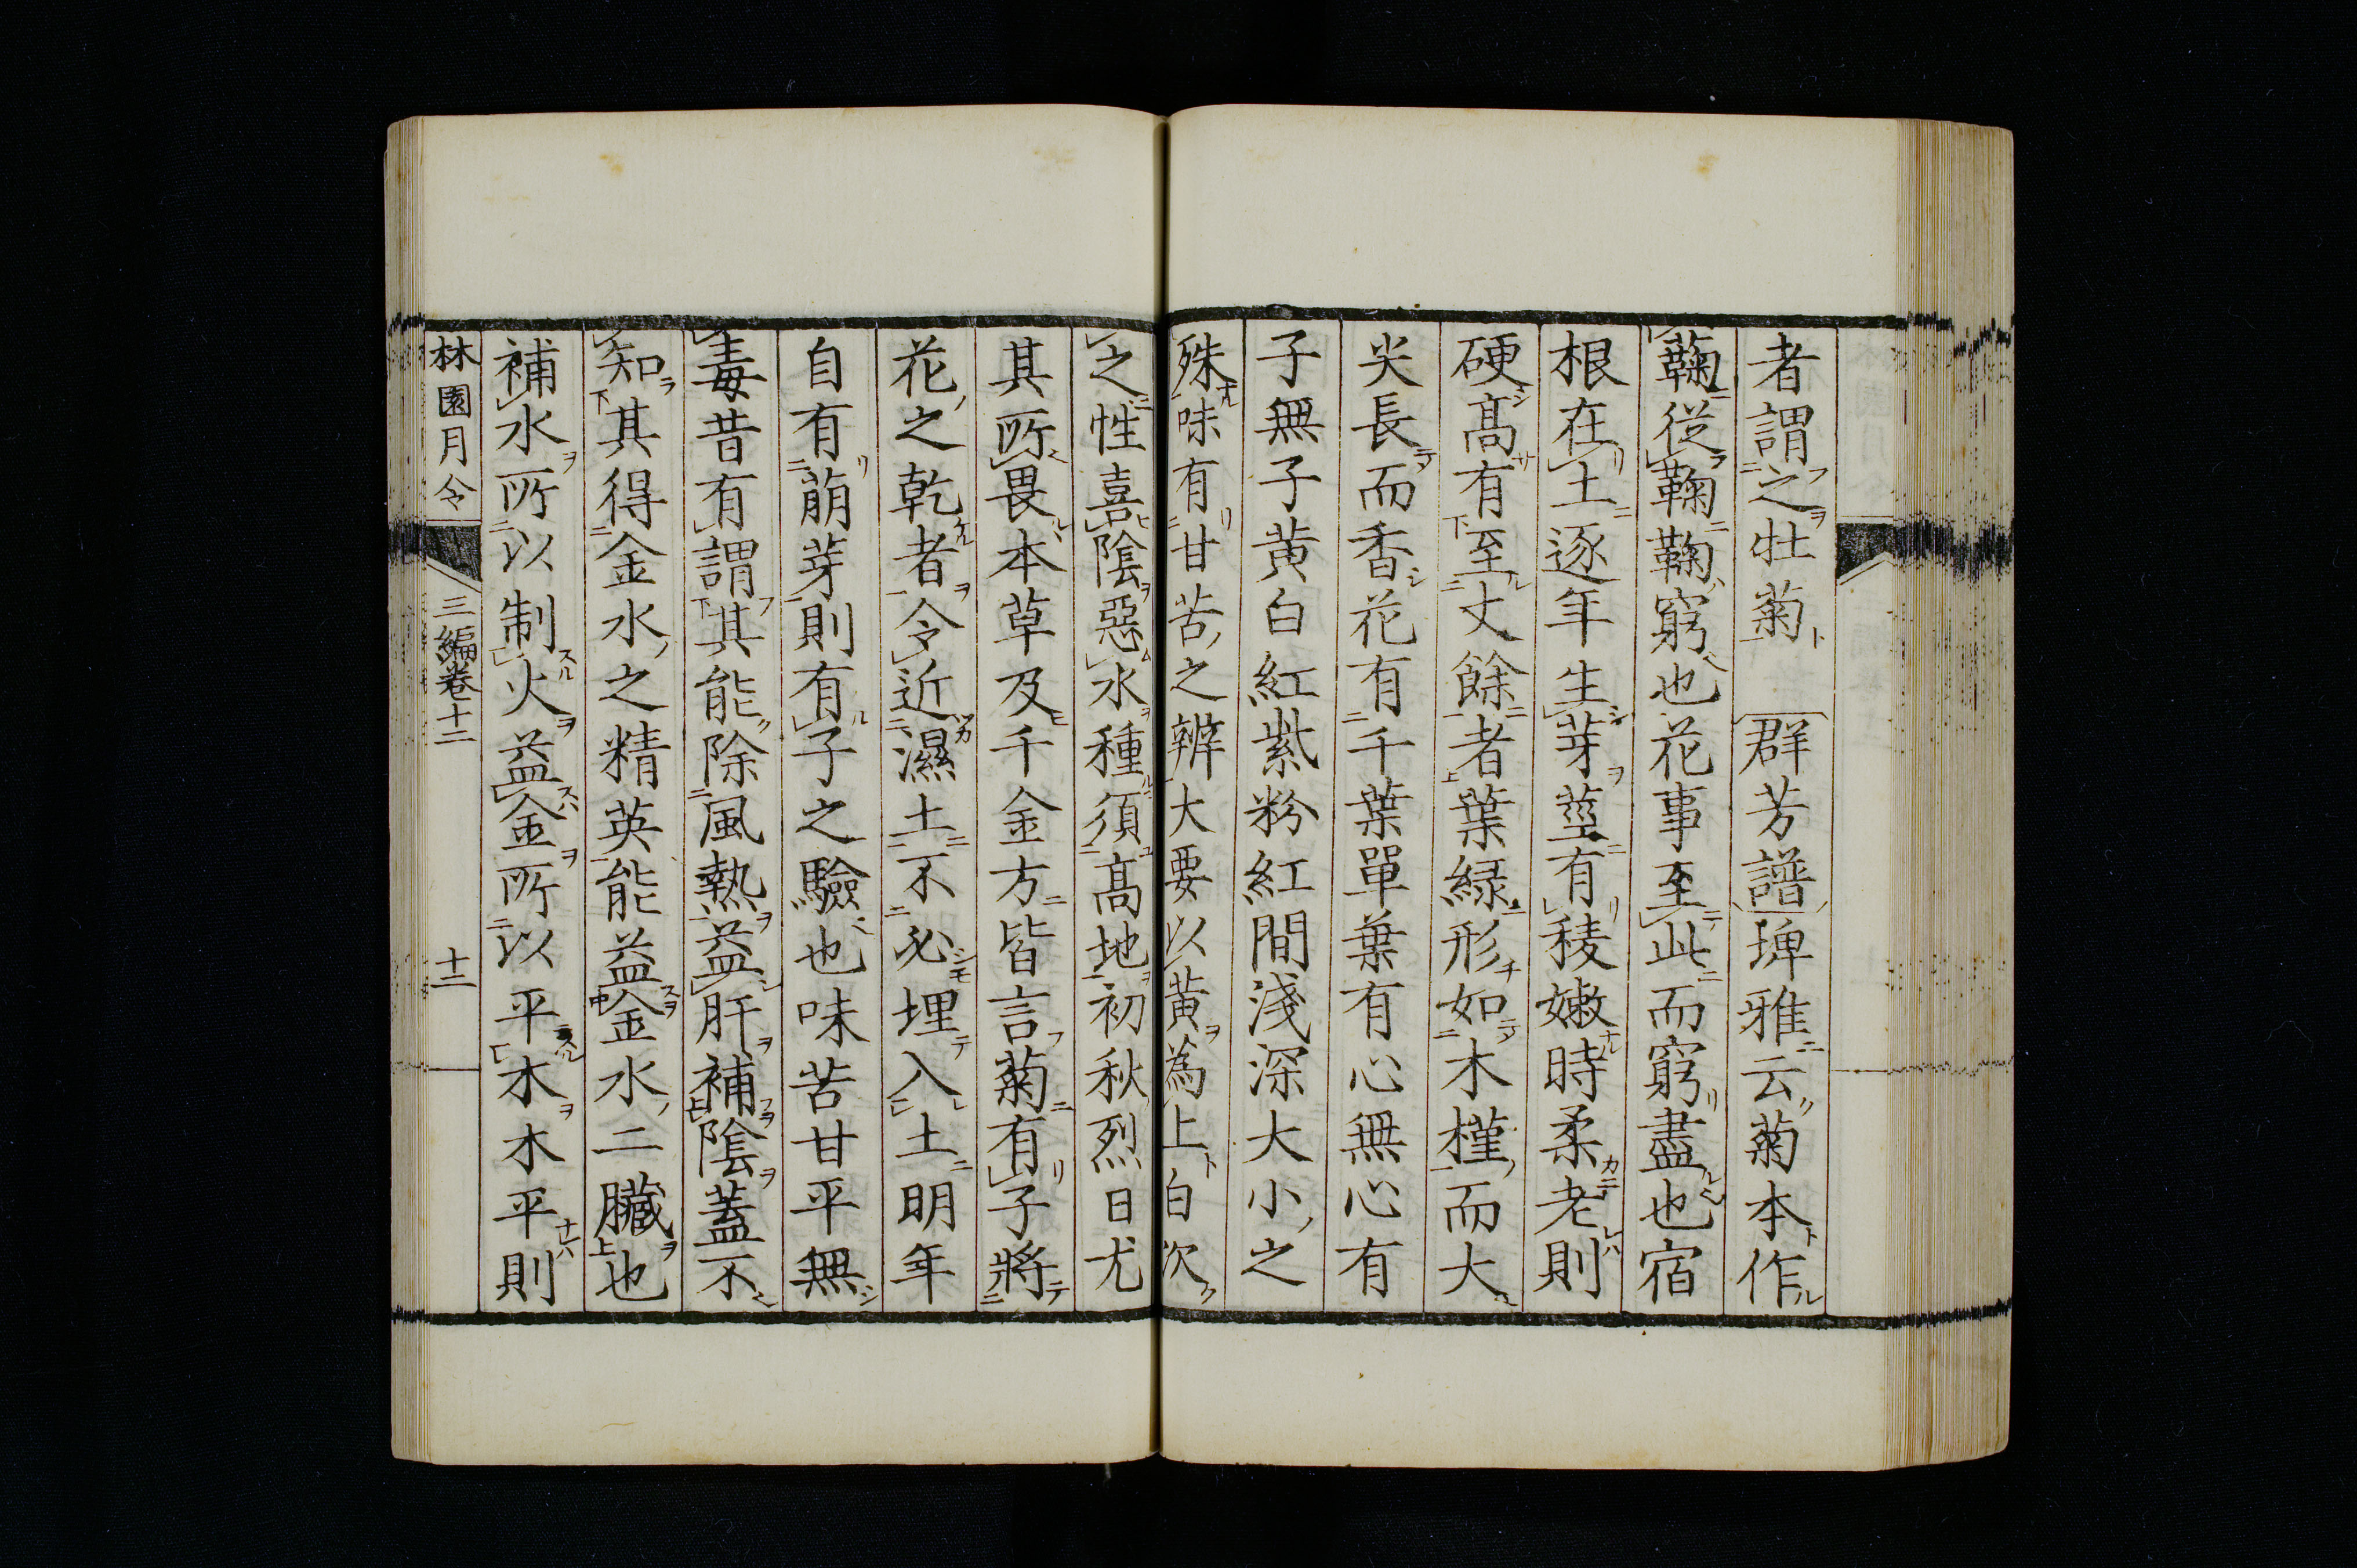 者謂之牡菊 群芳譜 埤雅云菊本作
鞠從鞠鞠窮也花事至此而窮盡也宿
根在土逐年生芽莖有稜嫩時柔老則
硬高有至丈餘者葉綠形如木槿而大
尖長而香花有千葉單葉有心無心有
子無子黄白紅紫粉紅間淺深大小之
殊味有甘苦之辨大要以黄為上白次
之性喜陰惡水種須高地初秋烈日尤
其所畏本草及千金方皆言菊有子將
花之乾者令近濕土不必埋入土明年
自有萠芽則有子之驗也味苦甘平無
毒昔有謂其能除風熱益肝補陰蓋不
知其得金水之精英能益金水二臟也
補水所以制火益金所以平木木平則
林園月令 三編卷十二 十二